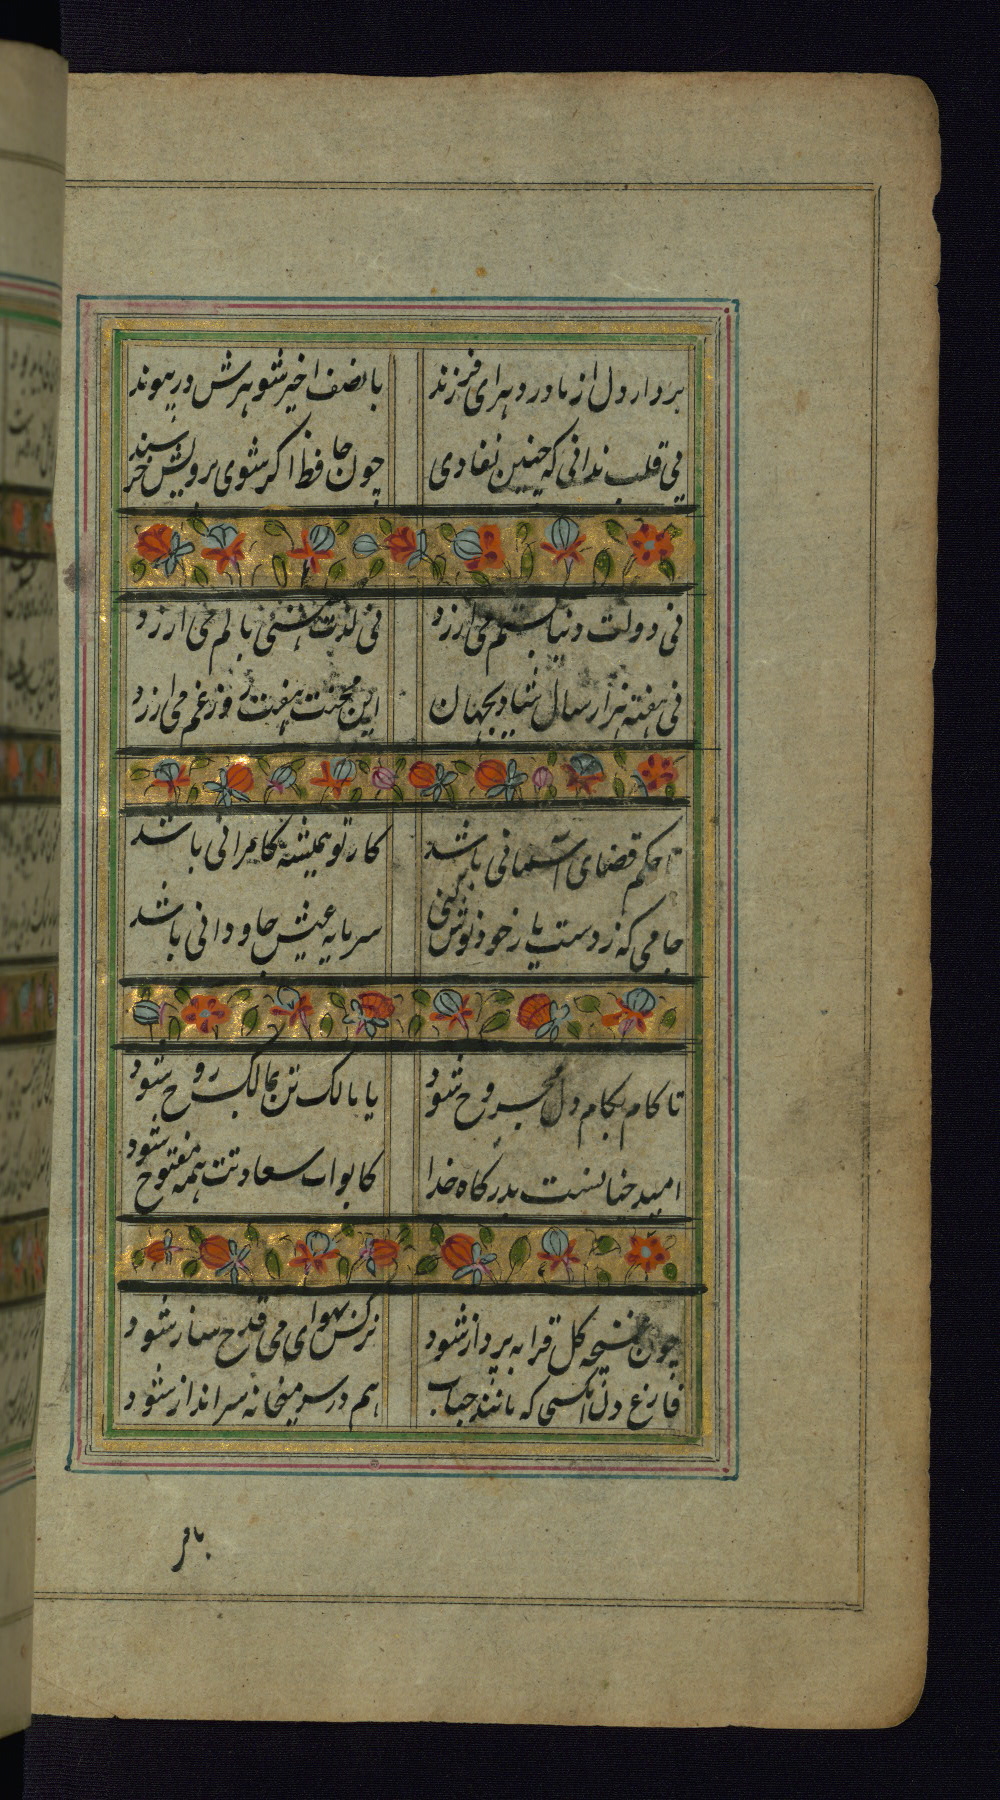 بردار دل از مادر دهر ای فرزند با نصف اخیر شوهرش در پیوند
می قلب ندانی که چنین نفادی چون حافظ اگر شوی برویش خرسند
نی دولت دنیا بستم می ارزد نی لذت هستی بالم می ارزد
نی هفته هزار سال شادی جهان این محنت هفت روز غم می ارزد
تا حکم قضای آسمانی باشد کار تو همیشه کامرانی باشد
جامی که ز دست یار خود نوش کنی سرمایه عیش جاودانی باشد
تا کام بکام دل مجروح شود یا مالک تن بمالک روح شود
امید چنانست بدرکاه خدا کابواب سعادتت همه مفتوح شود
چون غنچه کل قرابه پرداز شود نرکس بهوای می قدح ساز شود
فارغ دل انکسی که مانند حباب هم در سر میخانه سرانداز شود